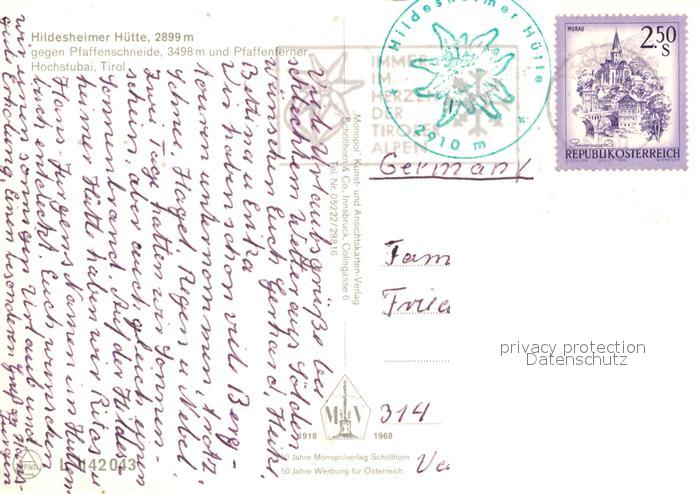 Hildesheimer Hütte, 2899 m
gegen Pfaffenschneide, 3498 m und Pfaffenferner
Hochstubai, Tirol
Viele Urlaubsgrüße bei
schlechtem Wetter aus Sölden
wünschen Euch Gerhard,
Bettina u. Erika
Wir haben schon viele Berg-
touren unternommen, trotz
Schnee, Hagel, Regen u. Nebel.
Zwei Tage hatten wir Sonnen-
schein aber auch gleich einen
Sonnenbrand. Auf der Hildes-
heimer Hütte haben wir Ritas u.
Hans-Jürgens Namen im Hütten-
buch entdeckt. Euch wünschen
wir einen sonnigen Urlaub und
gute Erholung. Einen besonderen Gruß
"Monopol" Kunst- und Ansichtskarten-Verlag
Schöllhorn & Co., Innsbruck, Colingasse 6
Tel. Nr. 05222/29816
IMMER
IM
HERZEN
DER
TIROLER
ALPEN
Hildesheimer Hütte
2910 m
MURAU
2.50
S
REPUBLIK ÖSTERREICH
Germany
Fam
privacy protection
Datenschutz
314
M V
1918 1968
50 Jahre Monopolverlag Schöllhorn
50 Jahre Werbung für Österreich
L 142043